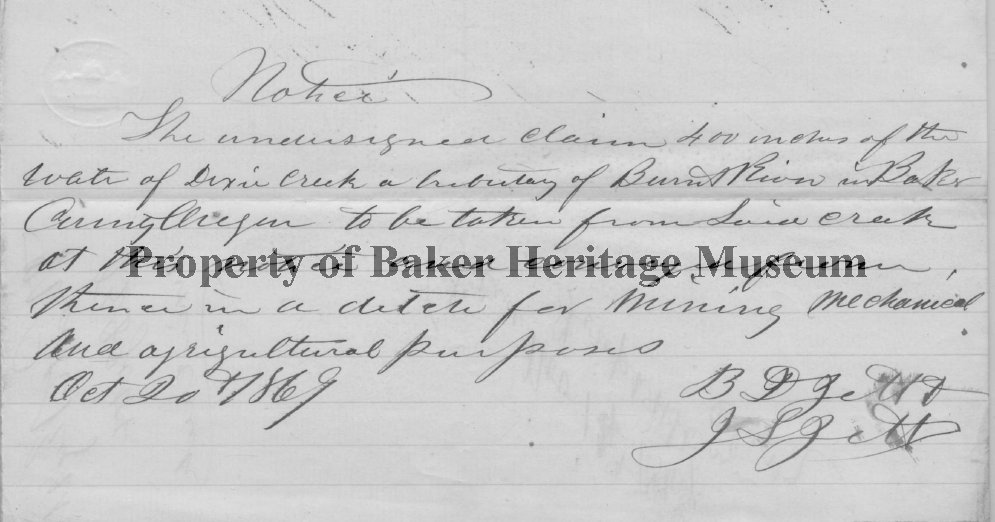 Notice
The undersigned claim 400 inches of the
Water of Dixie Creek a tributary of Burnt River in Baker
County Oregon to be taken from Said creek
at this notice and
Property of Baker Heritage Museum
thence in a ditch for Mining Mechanical
And agrigultural purposes
Oct 20th 1869
B D Jett
J S Jett